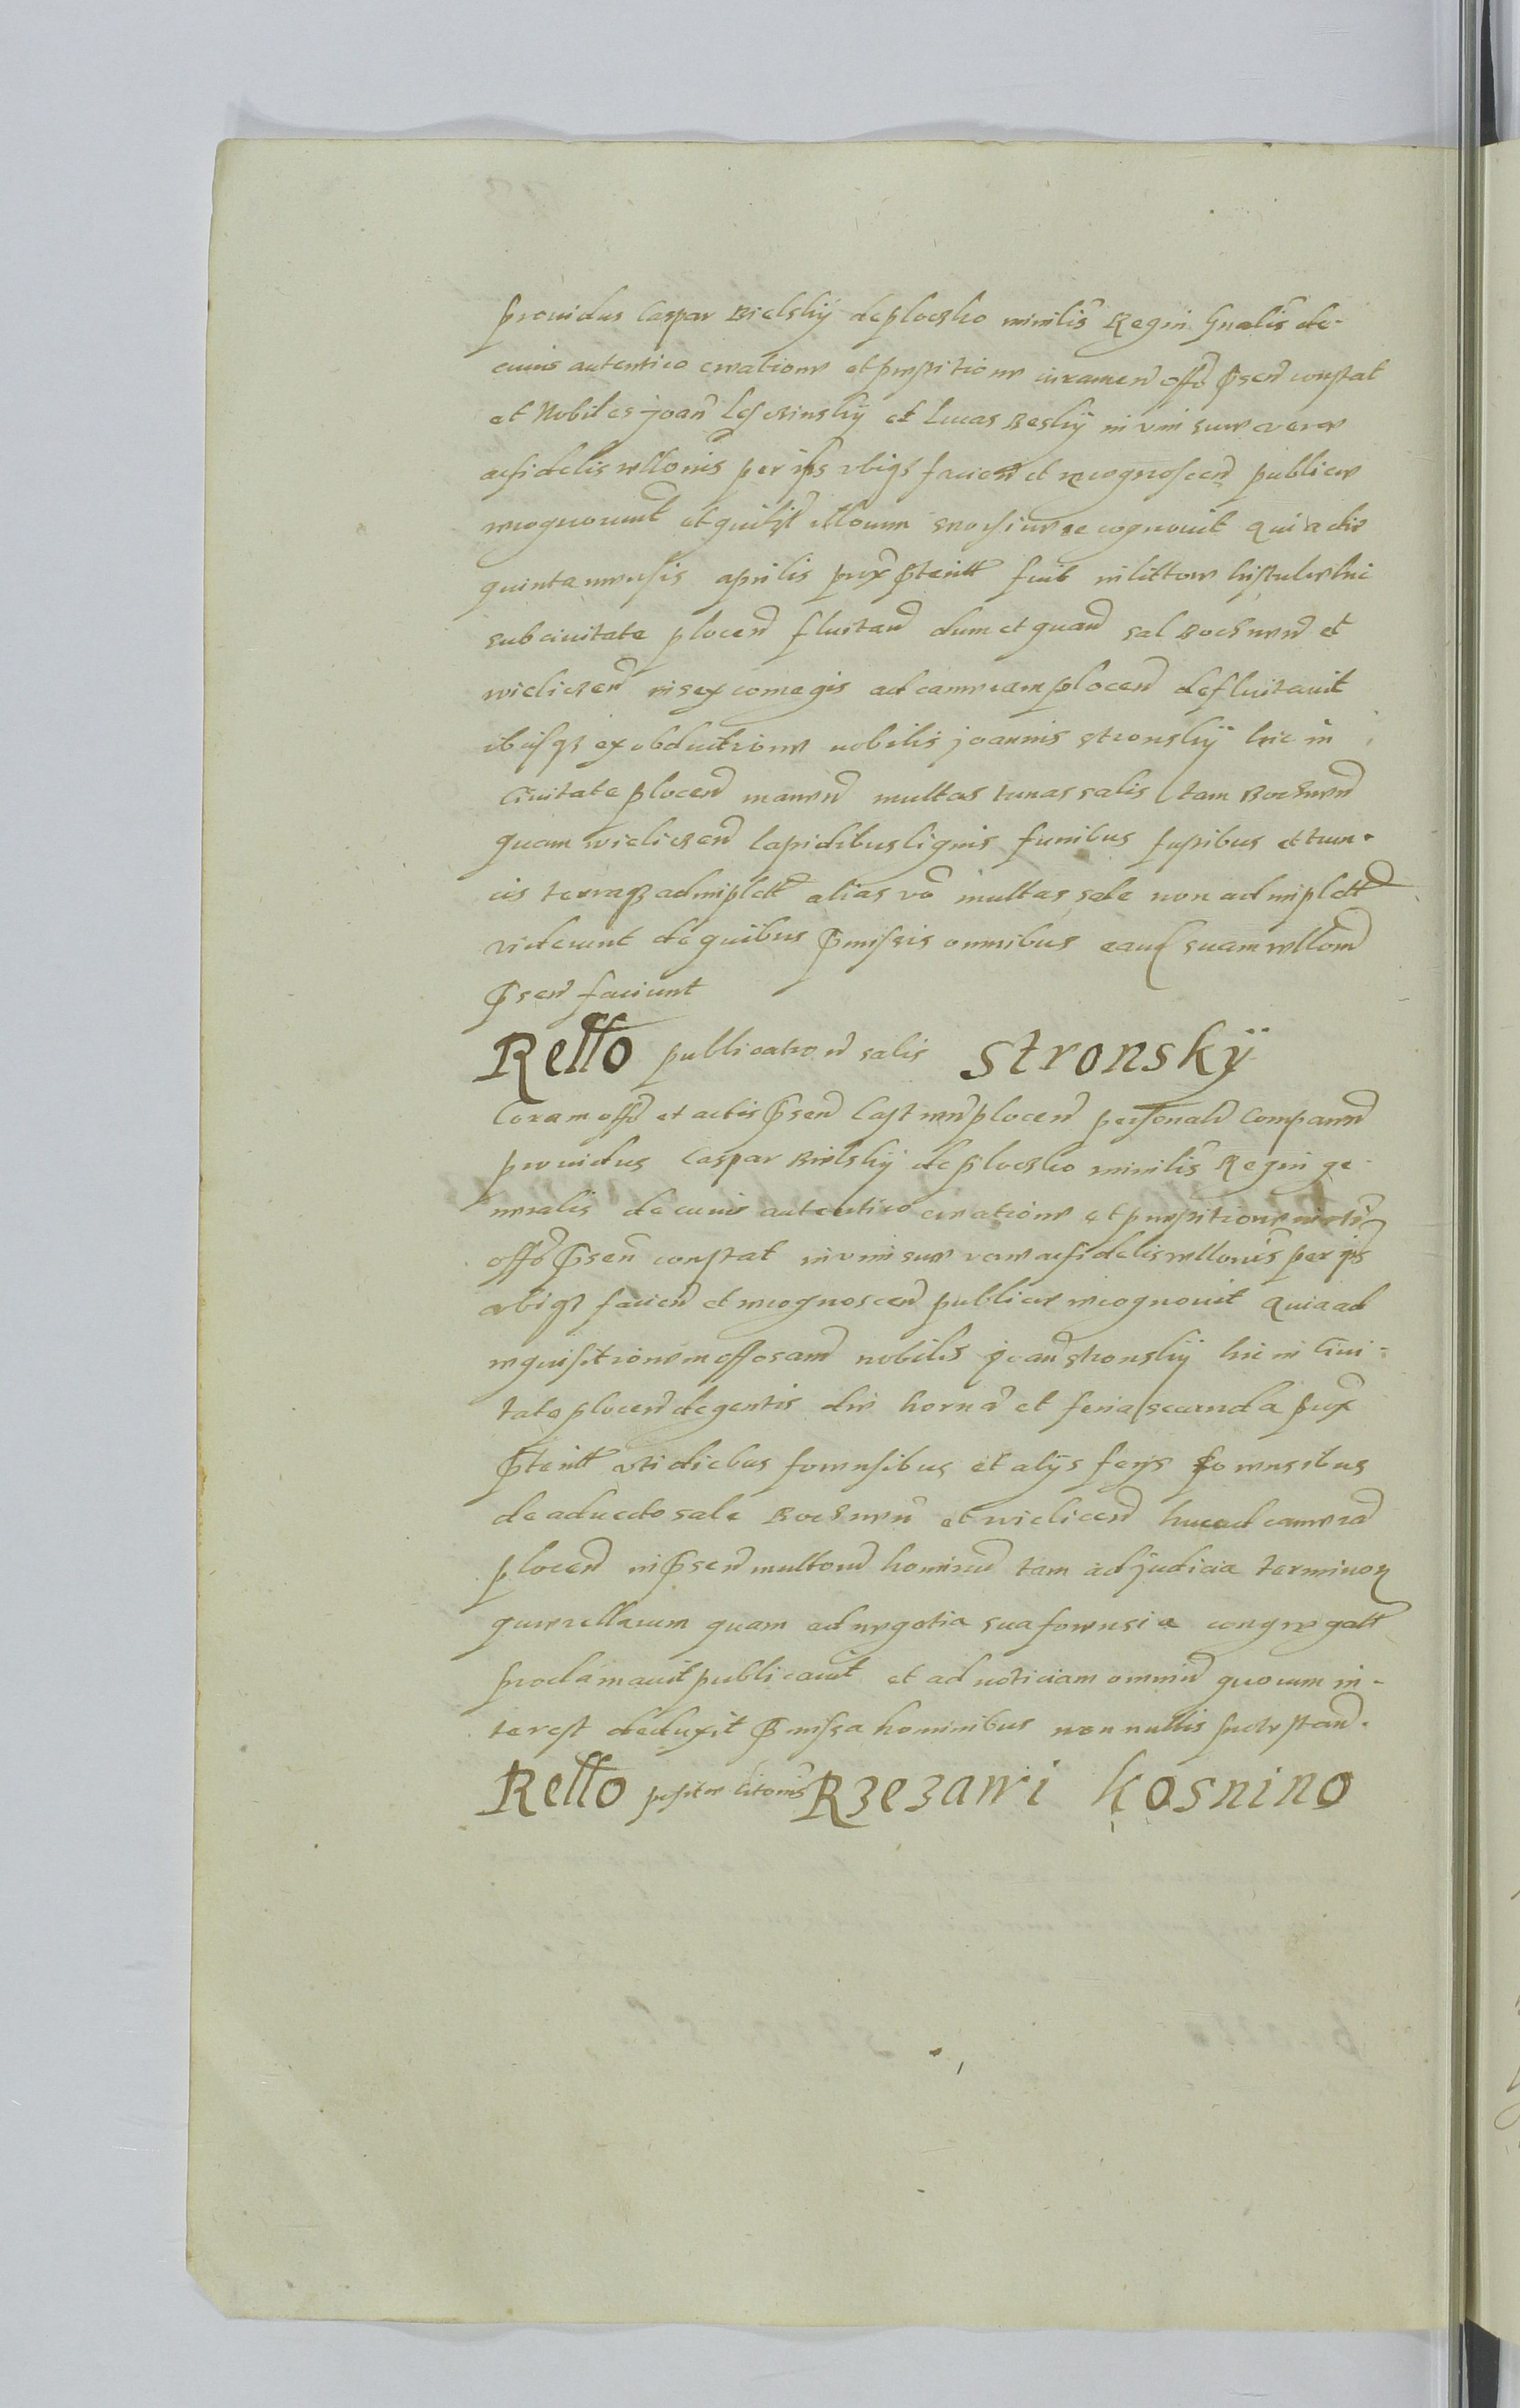 prouidus Caspar Bielskÿ de ploczko minilis Regni Gnalis de-
cuius autentico creatione et prestitione iuramen offo psen constat
et Nobiles joan Lesczinskÿ et Lucas Beskÿ in vim sue vere
ac fidelis rellonis per ipsos vbiqz facien et recognoscen publice
recognouerunt et quilibet illorum seorsiue recognouit Quia die
quinta mensis aprilis prox pterit fuit in littore histule hic
sub ciuitate plocen fluitan dum et quan sal Bochnen et
wieliczen in sex comegis ad cameram plocen defluitauit
ibiqz ex obductione nobilis joannis stronskÿ hic in
Ciuitate plocen manen multas tunas salis tam Bochnen
quam wieliczen lapidibus lignis funibus fustibus et trun-
cis terraqz adimplett alias vo multas sale non adimplett
viderunt de quibus pmissis omnibus eand suam rellom
psen faciunt
Rello publication salis stronskÿ
Coram offo et actis psen Castren plocen personalr Comparen
prouidus Caspar Bielskÿ de ploczko minilis Regni ge-
neralis de cuius autentico creatione et prestitione
offo psen constat in vim sue vere ac fidelis rellonis per ips
vbiqz facien et recognoscen publice recognouit Quia ad
requisitionem offosam nobilis joan stronskÿ hic in Ciui-
tate plocen degentis die horna et feria secunda prox
pterit vti diebus forensibus et alÿs ferÿs forensibus
de aducto sale Bochnen et wielicen huc ad camera
plocen in psen multorum hominu tam ad judicia terminor
querellarum quam ad negotia sua forensia congregatt
proclamauit publicauit et ad noticiam omniu quorum in-
terest deduxit pmissa hominibus non nullis
Rello posite citonis Rzezawi kosnino